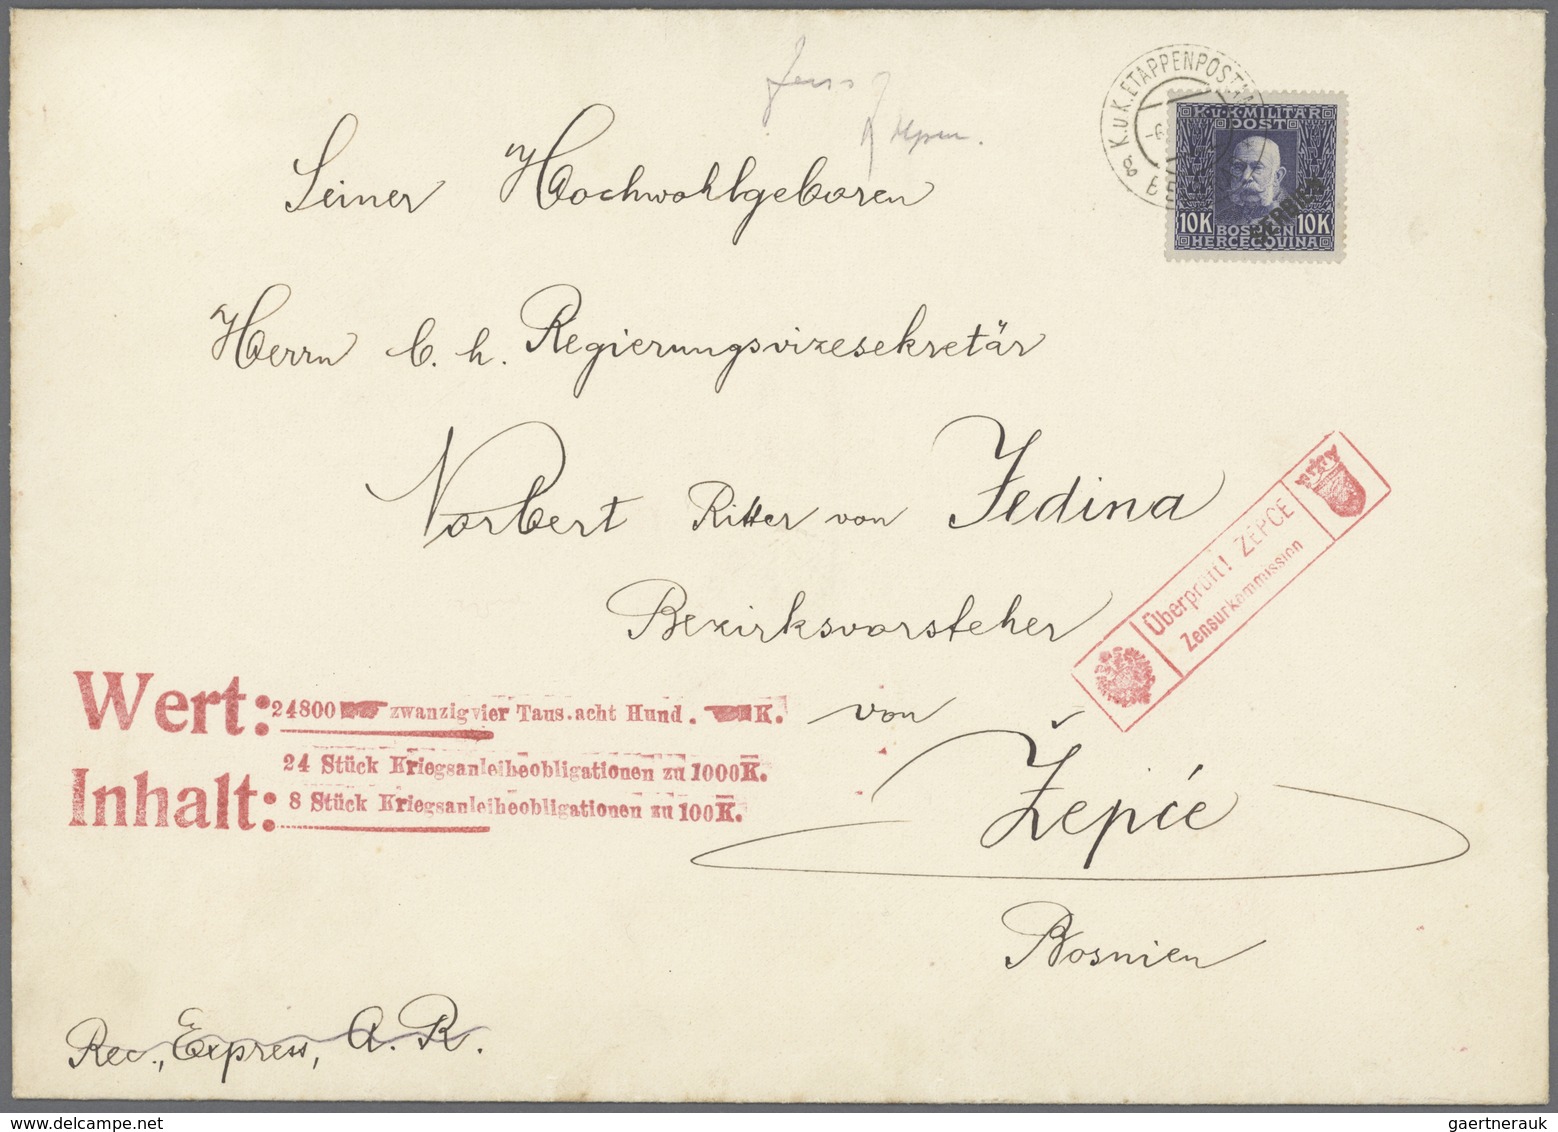 K.U.K.ETAPPENPOSTA
K.U.K. MILITÄR
POST
10K 10K
BOSNIEN
HERCEGOVINA
SERBIEN
Seiner Hochwohlgeboren
Herrn b. h. Regierungsvizesekretär
Norbert Ritter von Jedina
Bezirksvorsteher
Überprüft! ZEPCE
Zensurkommission
Wert: 24800 zwanzigvier Taus.acht Hund. K.
von
Inhalt: 24 Stück Kriegsanleiheobligationen zu 1000K.
8 Stück Kriegsanleiheobligationen zu 100K.
Žepče
Bosnien
Rec., Express, A. R.
gaertnerauk